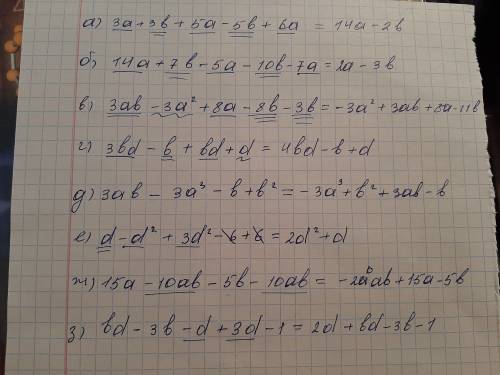 а) 3a+3b+5a-5b+6a = 14a-2b
б) 14a+7b-5a-10b-7a=2a-3b
в) 3ab-3a²+8a-8b-3b=-3a²+3ab+8a-11b
г) 3bd-b+bd+d=4bd-b+d
д) 3ab-3a³-b+b²=-3a³+b²+3ab-b
е) d-d²+3d²-b+b=2d²+d
ж) 15a-10ab-5b-10ab=-20ab+15a-5b
з) bd-3b-d+3d-1=2d+bd-3b-1